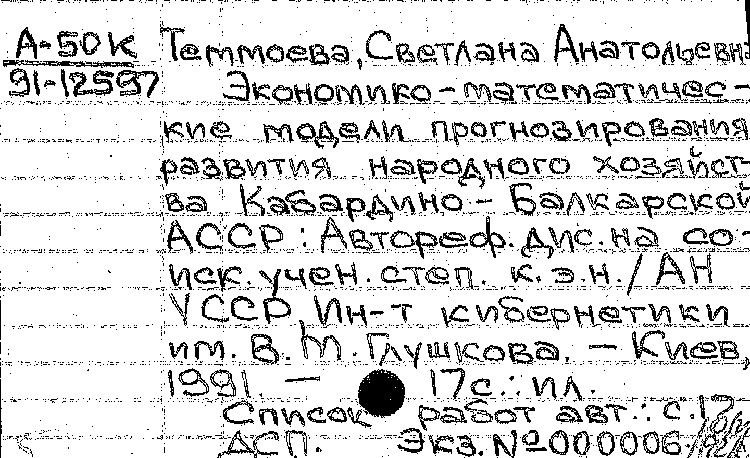 А-50К
91-12597
Теммоева, Светлана Анатольевна
Экономико-математичес-
кие модели прогнозирования
развития народного хозяйст-
ва Кабардино-Балкарской
АССР : Автореф. дис. на со-
иск. учен. степ. к.э.н. / АН
УССР, Ин-т кибернетики
им. В.М. Глушкова. — Киев,
1991. — 17с. : ил.
Список работ авт.: с.17
ДСП. Экз. №000006